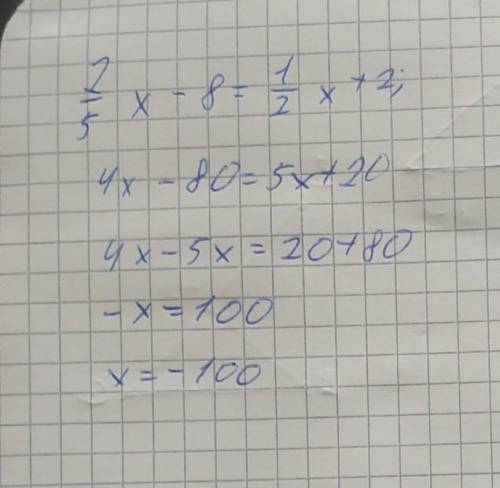 2/5 x - 8 = 1/2 x + 2;
4x - 80 = 5x + 20
4x - 5x = 20 + 80
-x = 100
x = -100